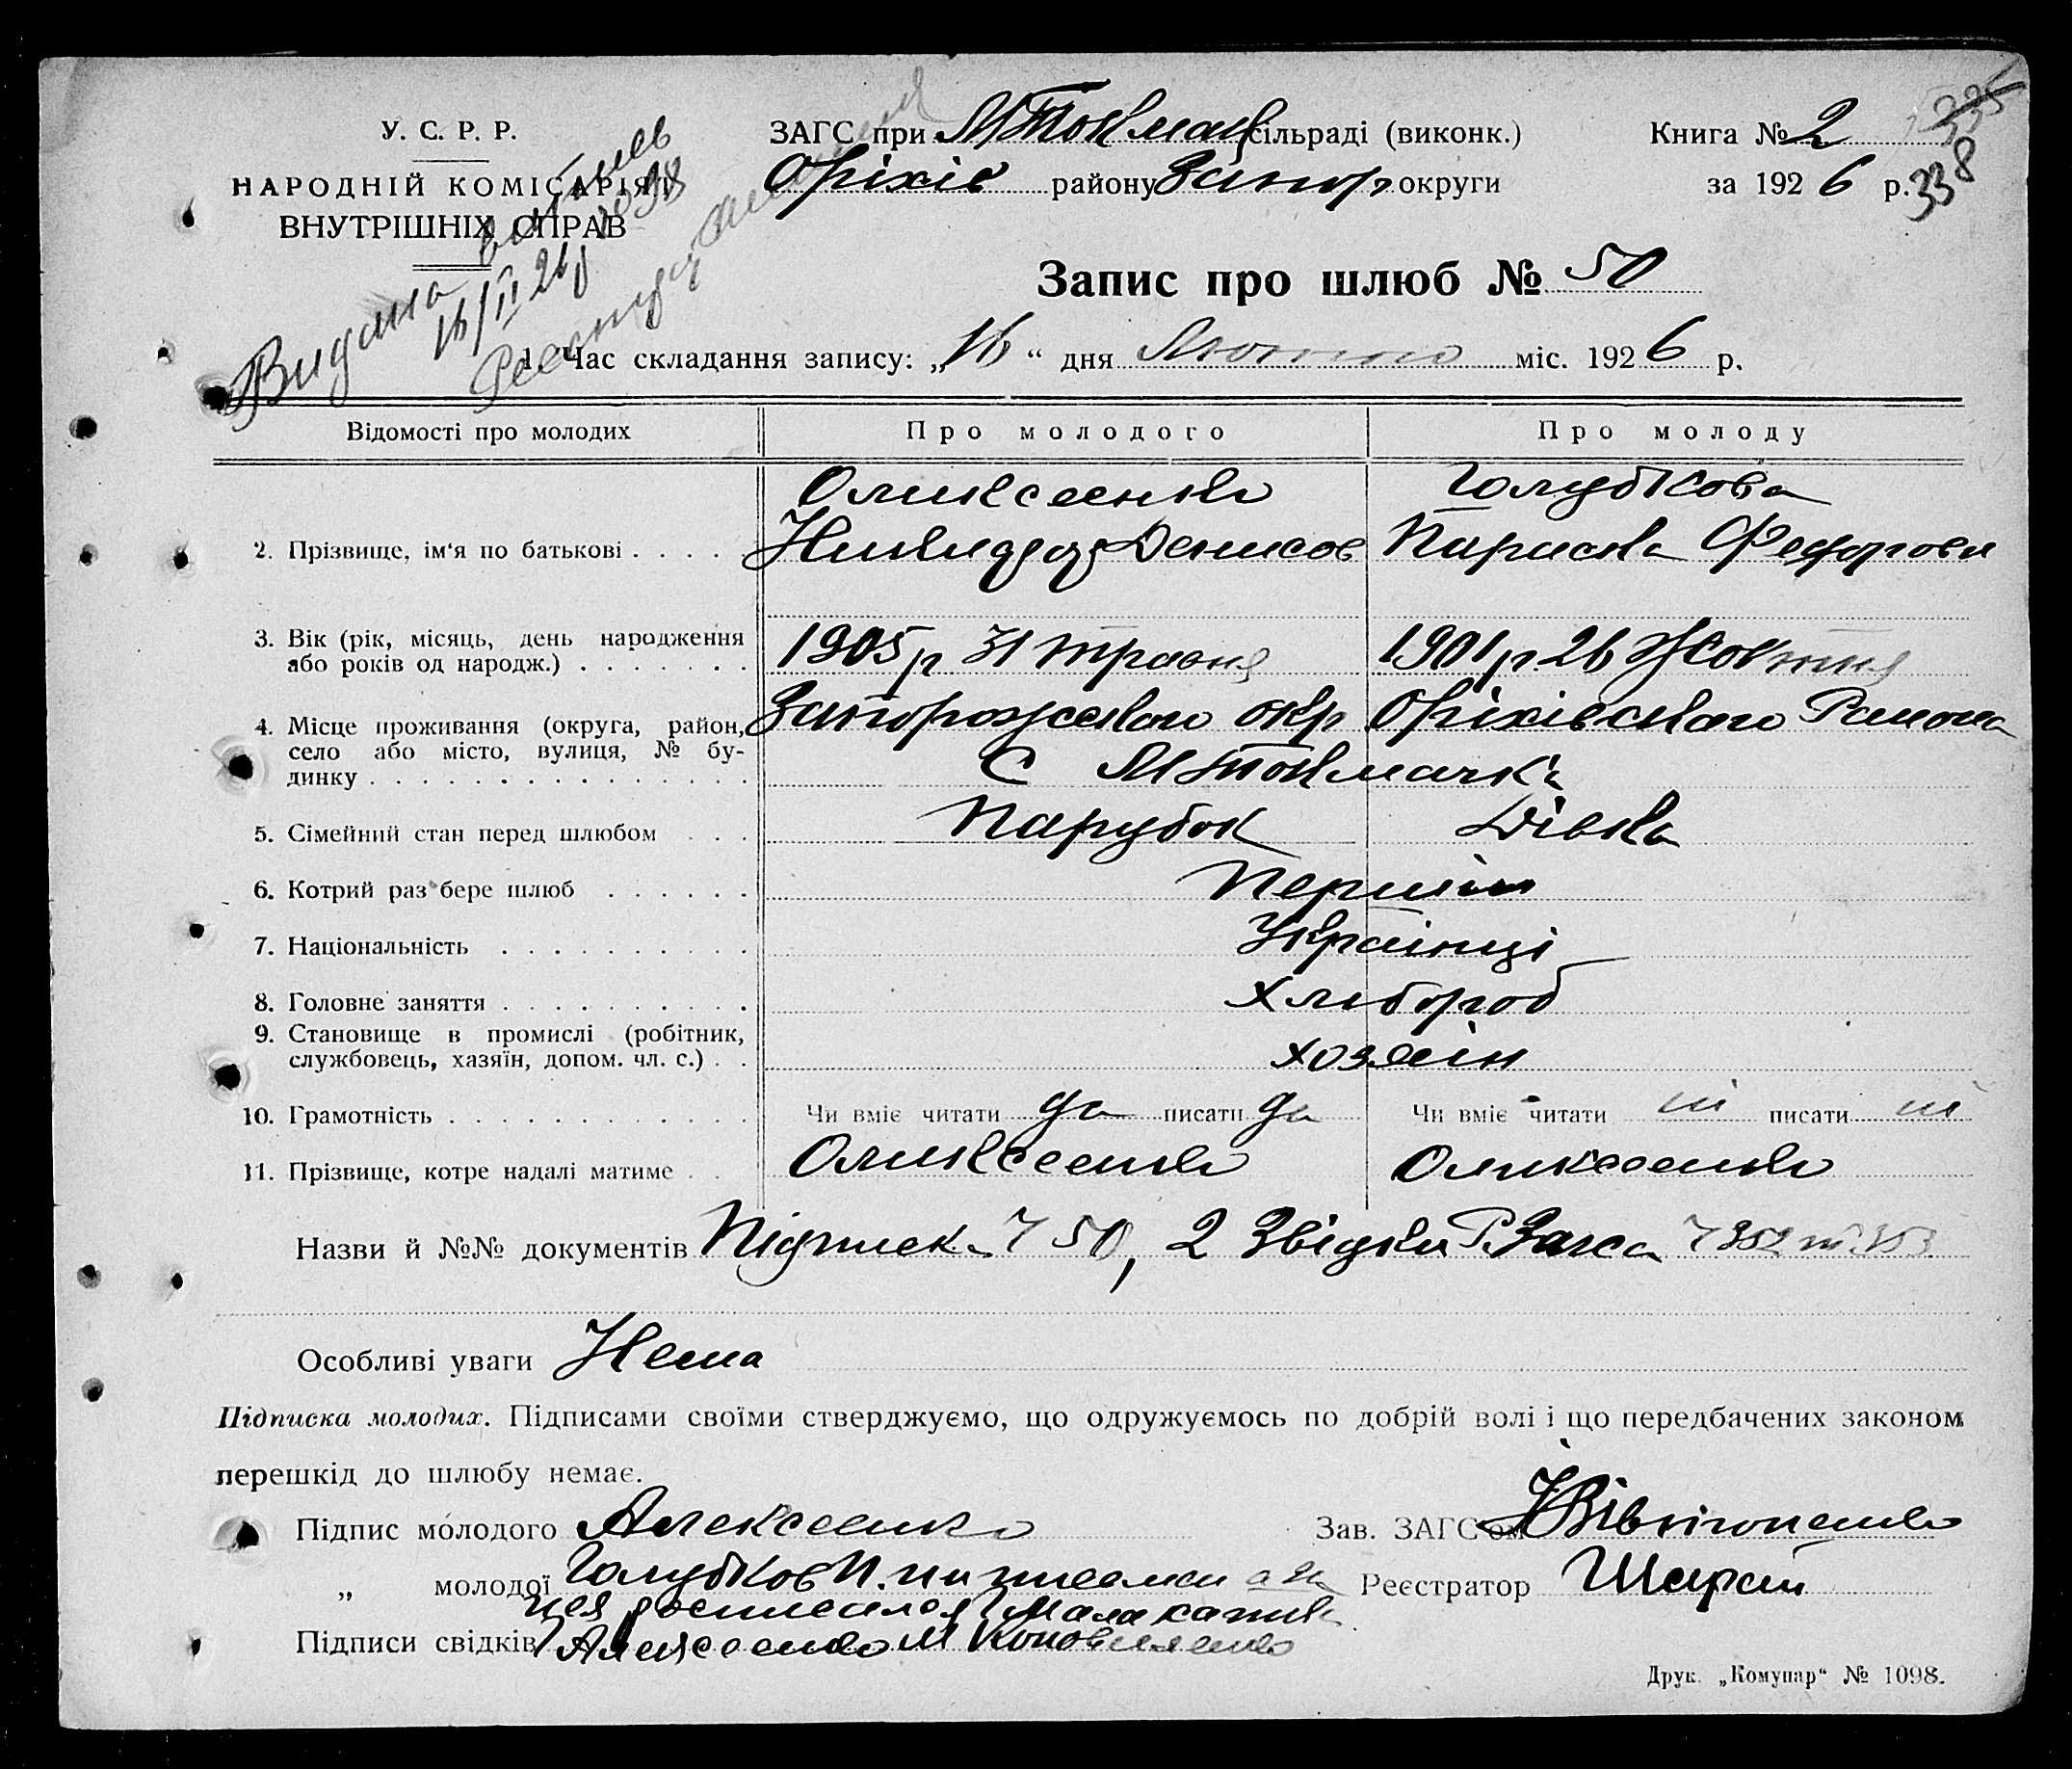 У. С. Р. Р.
НАРОДНІЙ КОМІСАРІЯТ
ВНУТРІШНІХ СПРАВ
Видана
16/II 26
ЗАГС при М Токмац сільраді (виконк.)
Оріхів району Запор округи
Книга № 2
за 1926 р.
335
338
Запис про шлюб № 50
1. Час складання запису: „16“ дня Лютого міс. 1926 р.
Відомості про молодих Про молодого Про молоду
Оликсеенко Голубкова
2. Прізвище, ім'я по батькові . . . . Никидор Денисов Параска Федорова
3. Вік (рік, місяць, день народження
або років од народж.) . . . . . . . 1905 р 31 травня 1901 р. 26 Жовтня
4. Місце проживання (округа, район,
село або місто, вулиця, № бу-
динку . . . . . . . . . . . . . .
Запорожского окр Оріхівского Района
С МТокмачк
5. Сімейний стан перед шлюбом . . . Парубок Дівка
6. Котрий раз бере шлюб . . . . . . Перший
7. Національність . . . . . . . . . . Українці
8. Головне заняття . . . . . . . . . . Хлибороб
9. Становище в промислі (робітник,
службовець, хазяїн, допом. чл. с.) . . хозяїн
10. Грамотність . . . . . . . . . . . . Чи вміє читати да писати да Чи вміє читати ні писати ні
11. Прізвище, котре надалі матиме . . Оликсеенко Оликсеенко
Назви й №№ документів Підписка 50, 2 Звідки Р Загса 352 353
Особливі уваги Нема
Підписка молодих. Підписами своїми стверджуємо, що одружуємось по добрій волі і що передбачених законом
перешкід до шлюбу немає.
Підпис молодого Алексеенко Зав. ЗАГС'ом
„ молодої Голубков Реєстратор Шарай
росписался
Підписи свідків Алексеенко М Коноваленко
Друк. „Комунар“ № 1098.